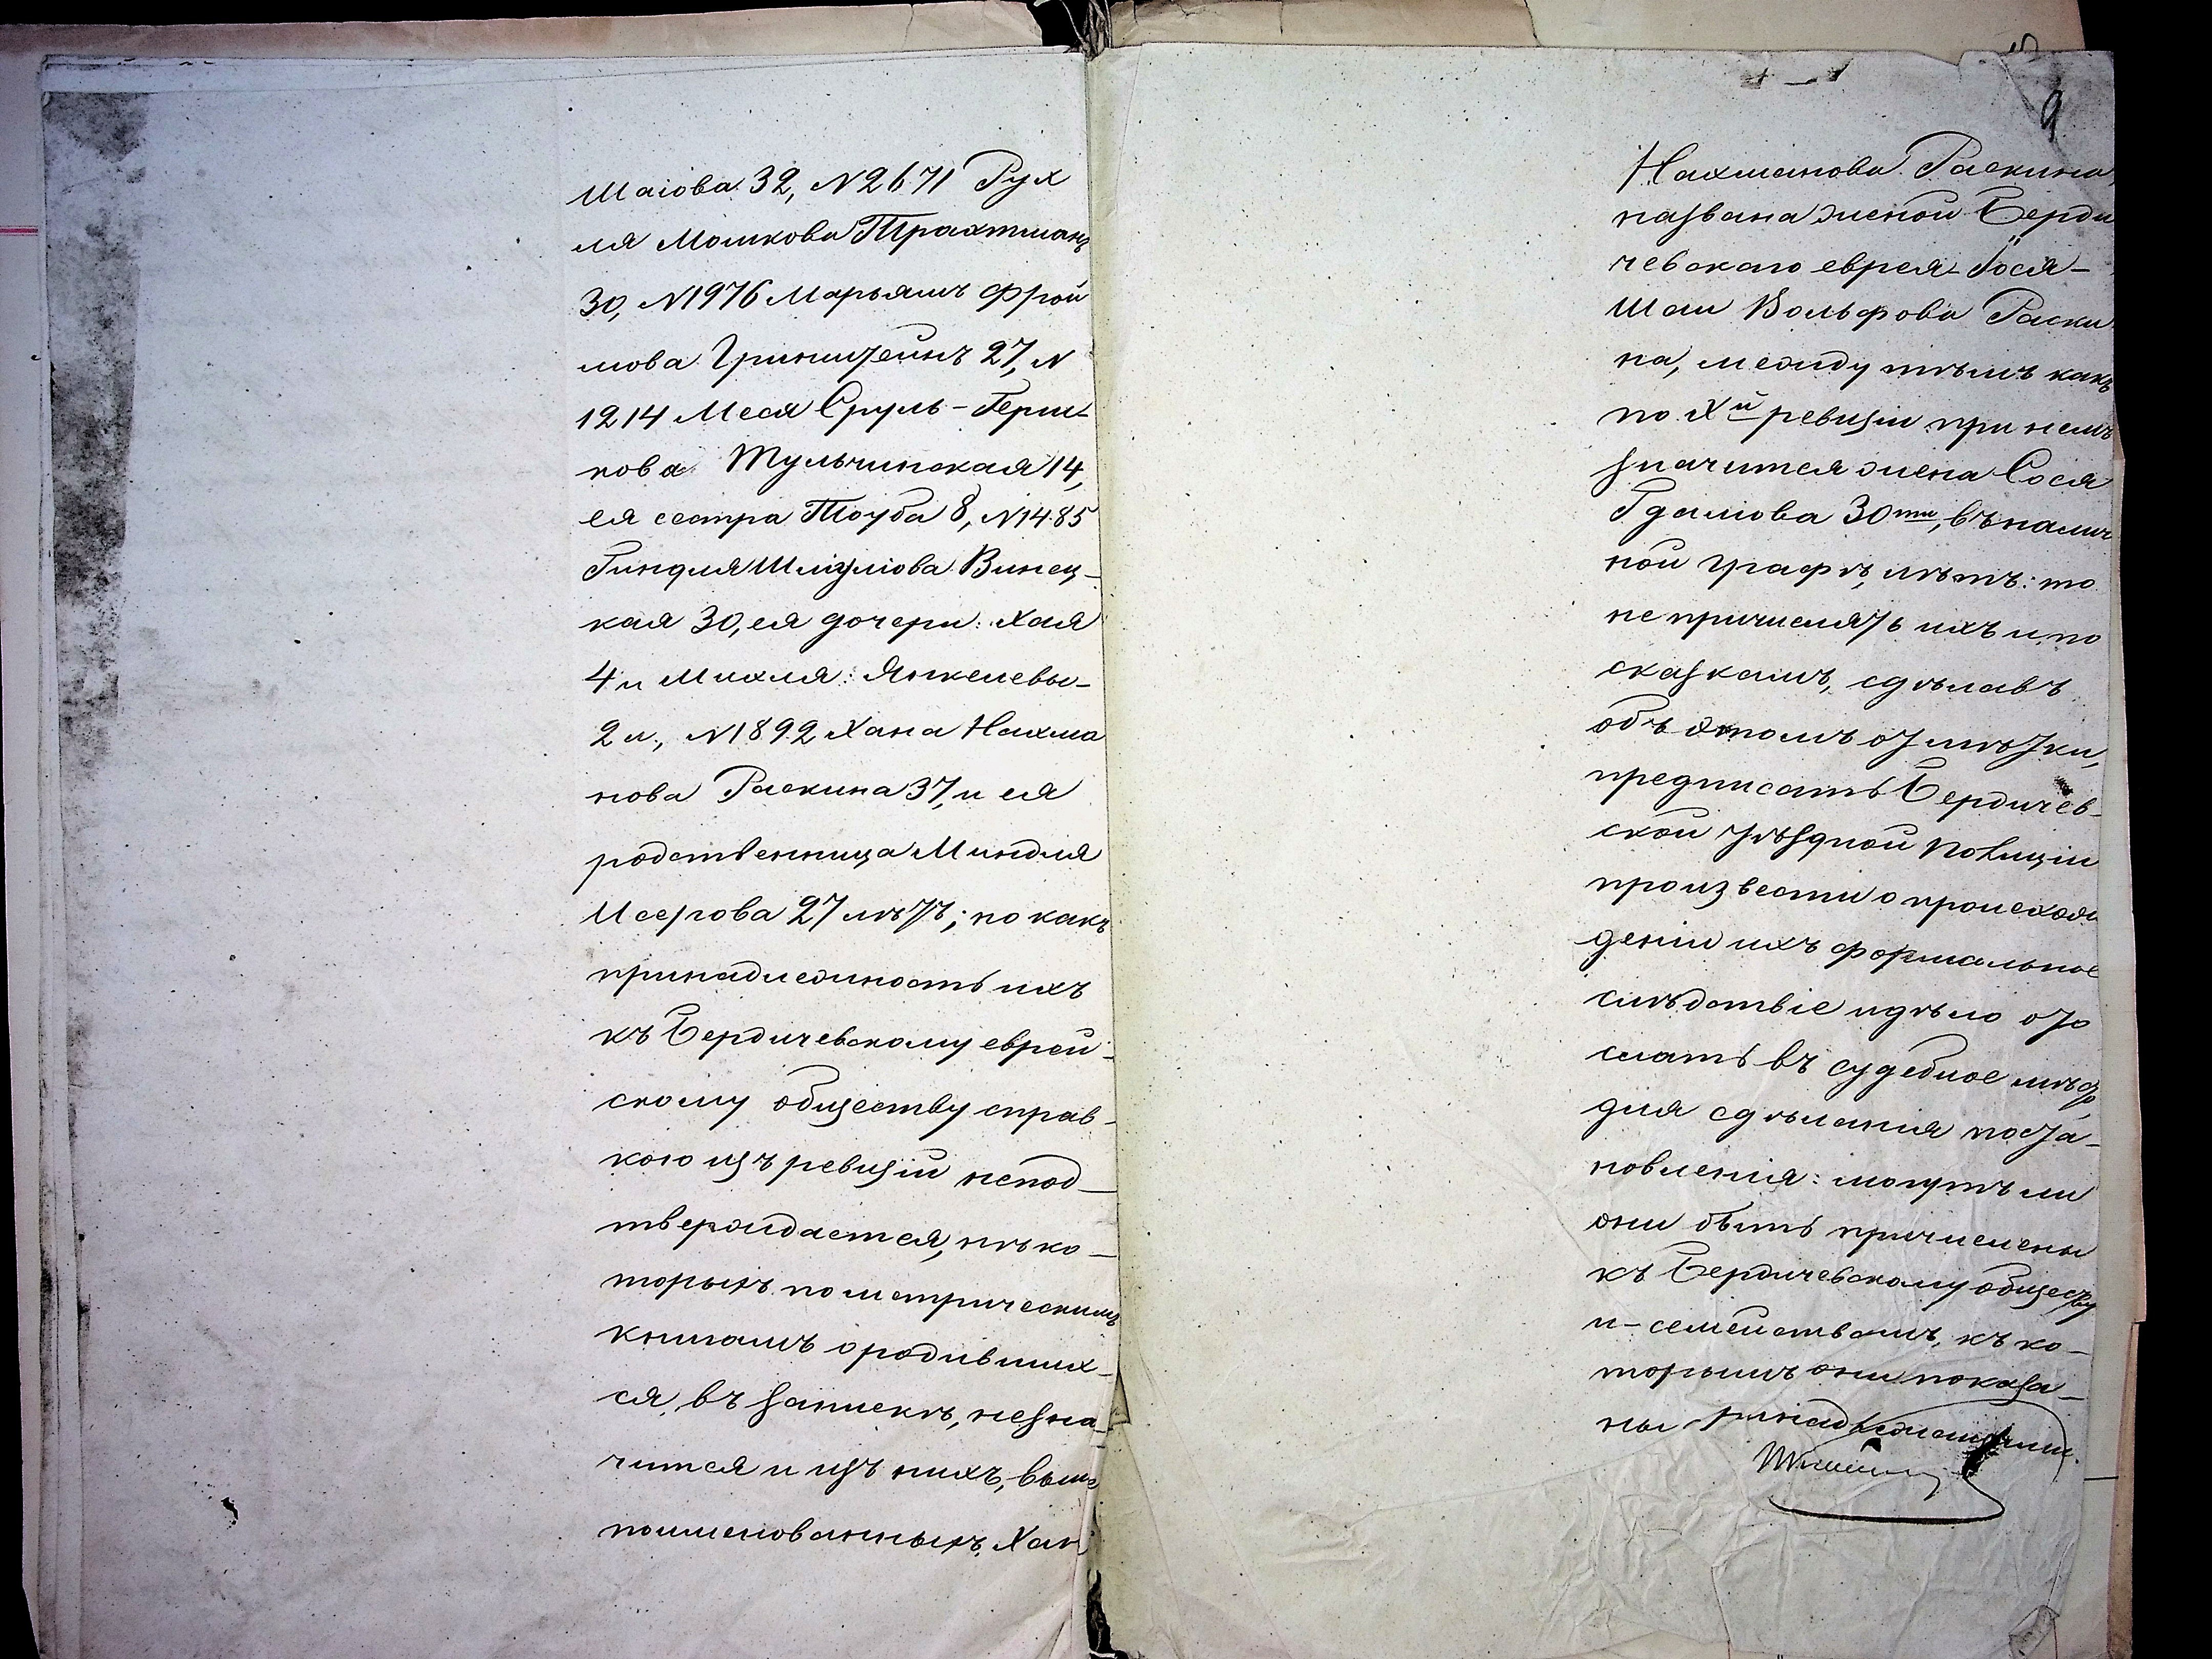 Шаіова 32, N 2671 Рух
ля Мошкова Трахтманъ
30, N 1976 Марьямъ Фрои
мова Гринштейнъ 27, N
1214 Меся Сруль-Герш-
кова Тульчинская 14,
ея сестра Тоуба 8, N 1485
Гиндля Шмулова Винец-
кая 30, ея дочери: Хая
4 и Михля: Янкелевы-
2 л., N 1892 Хана Нахма
нова Раскина 37, и ея
родственница Миндля
Меерова 27 лѣтъ; но какъ
принадлежность ихъ
къ Бердичевскому еврей-
скому обществу справ-
кою изъ ревизіи непод-
тверждается, нѣко-
торыхъ по метрическимъ
книгамъ о родивших-
ся, въ запискѣ, незна-
чится и изъ нихъ, выше
поименованныхъ, Хан
9
Нахманова Раскина,
названа женой Берди
чевскаго еврея Іося-
Шаи Вольфова Раски
на, между тѣмъ какъ
по Х й ревизіи при немъ
значится жена Сося
Гдалюва 30 ти, въ налич
ной графѣ, лѣтъ: то
не причислять ихъ и по
сказкамъ, сдѣлавъ
объ этомъ отмѣтки,
предписать Бердичев-
ской уѣздной полиціи
произвести о происхож
деніи ихъ формальное
слѣдствіе и дѣло ото
слать въ судебное мѣсто
для сдѣланія поста-
новленія: могутъ ли
они быть причислены
къ Бердичевскому обществу
и семействамъ, къ ко-
торымъ они показа-
ны принадлежащими.